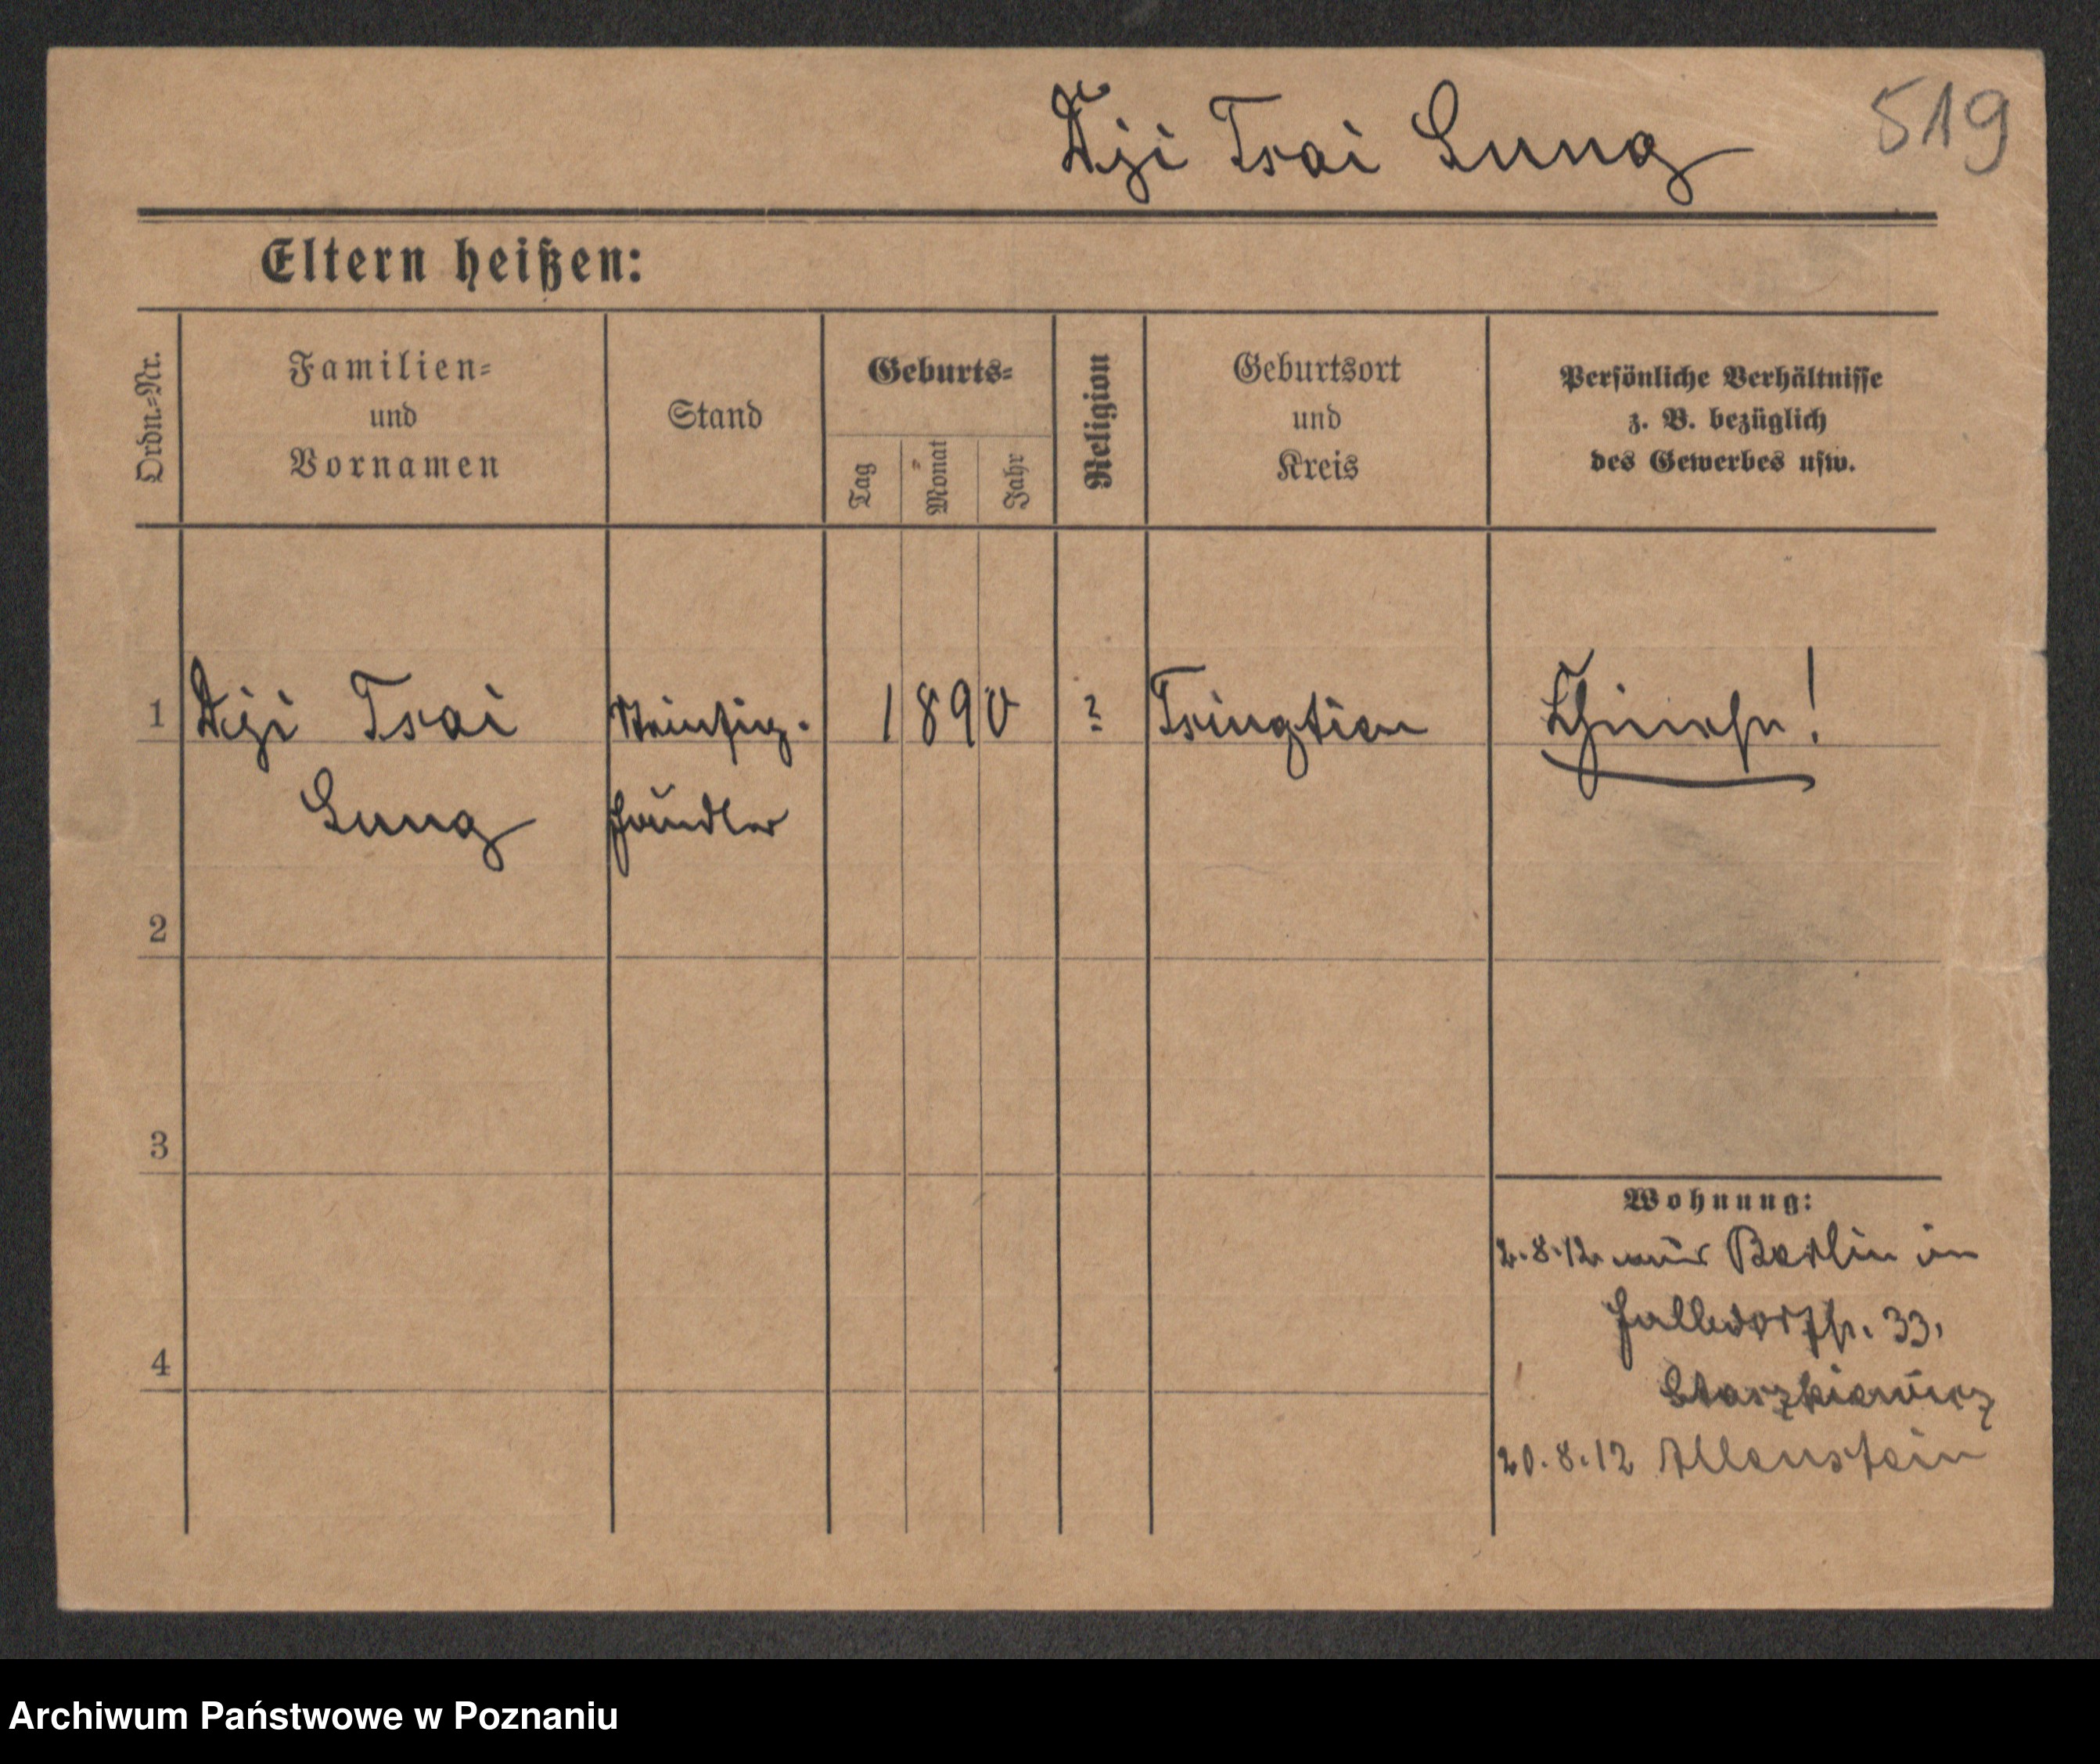 Dji Tsai Lung 519
Eltern heißen:
Ordn.-Nr.
Familien-
und
Vornamen
Stand
Geburts-
Tag
Monat
Jahr
Religion
Geburtsort
und
Kreis
Persönliche Verhältnisse
z. B. bezüglich
des Gewerbes usw.
1 Dji Tsai 1890 ? Tsingtien Chinese!
Lung händler
2
3
4
Wohnung:
2.8.12 aus Berlin in
Halbdorfstr. 33.
20.8.12 Allenstein
Archiwum Państwowe w Poznaniu